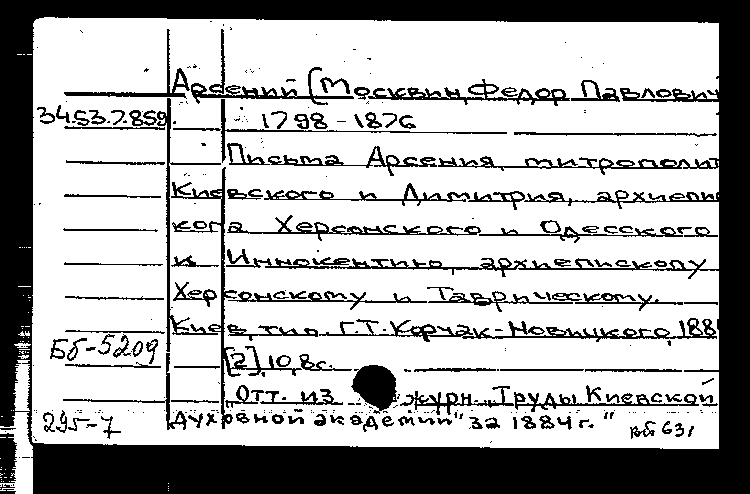 Арсений (Москвин, Федор Павлович
34.53.7.859. 1798-1876
Письма Арсения, митрополит
Киевского и Димитрия, архиепи
копа Херсонского и Одесского
к Иннокентию, архиепископу
Херсонскому и Таврическому.
Киев, тип. Г.Т. Корчак-Новицкого, 188
Бб-5209 [2], 10, 8 с.
Отт. из журн. "Труды Киевской
295-7 духовной академии" за 1884 г."